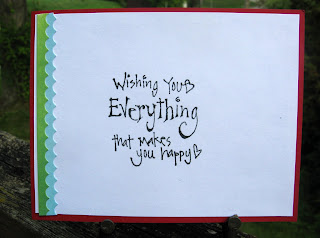 Wishing You♡
Everything
that makes
you happy♡